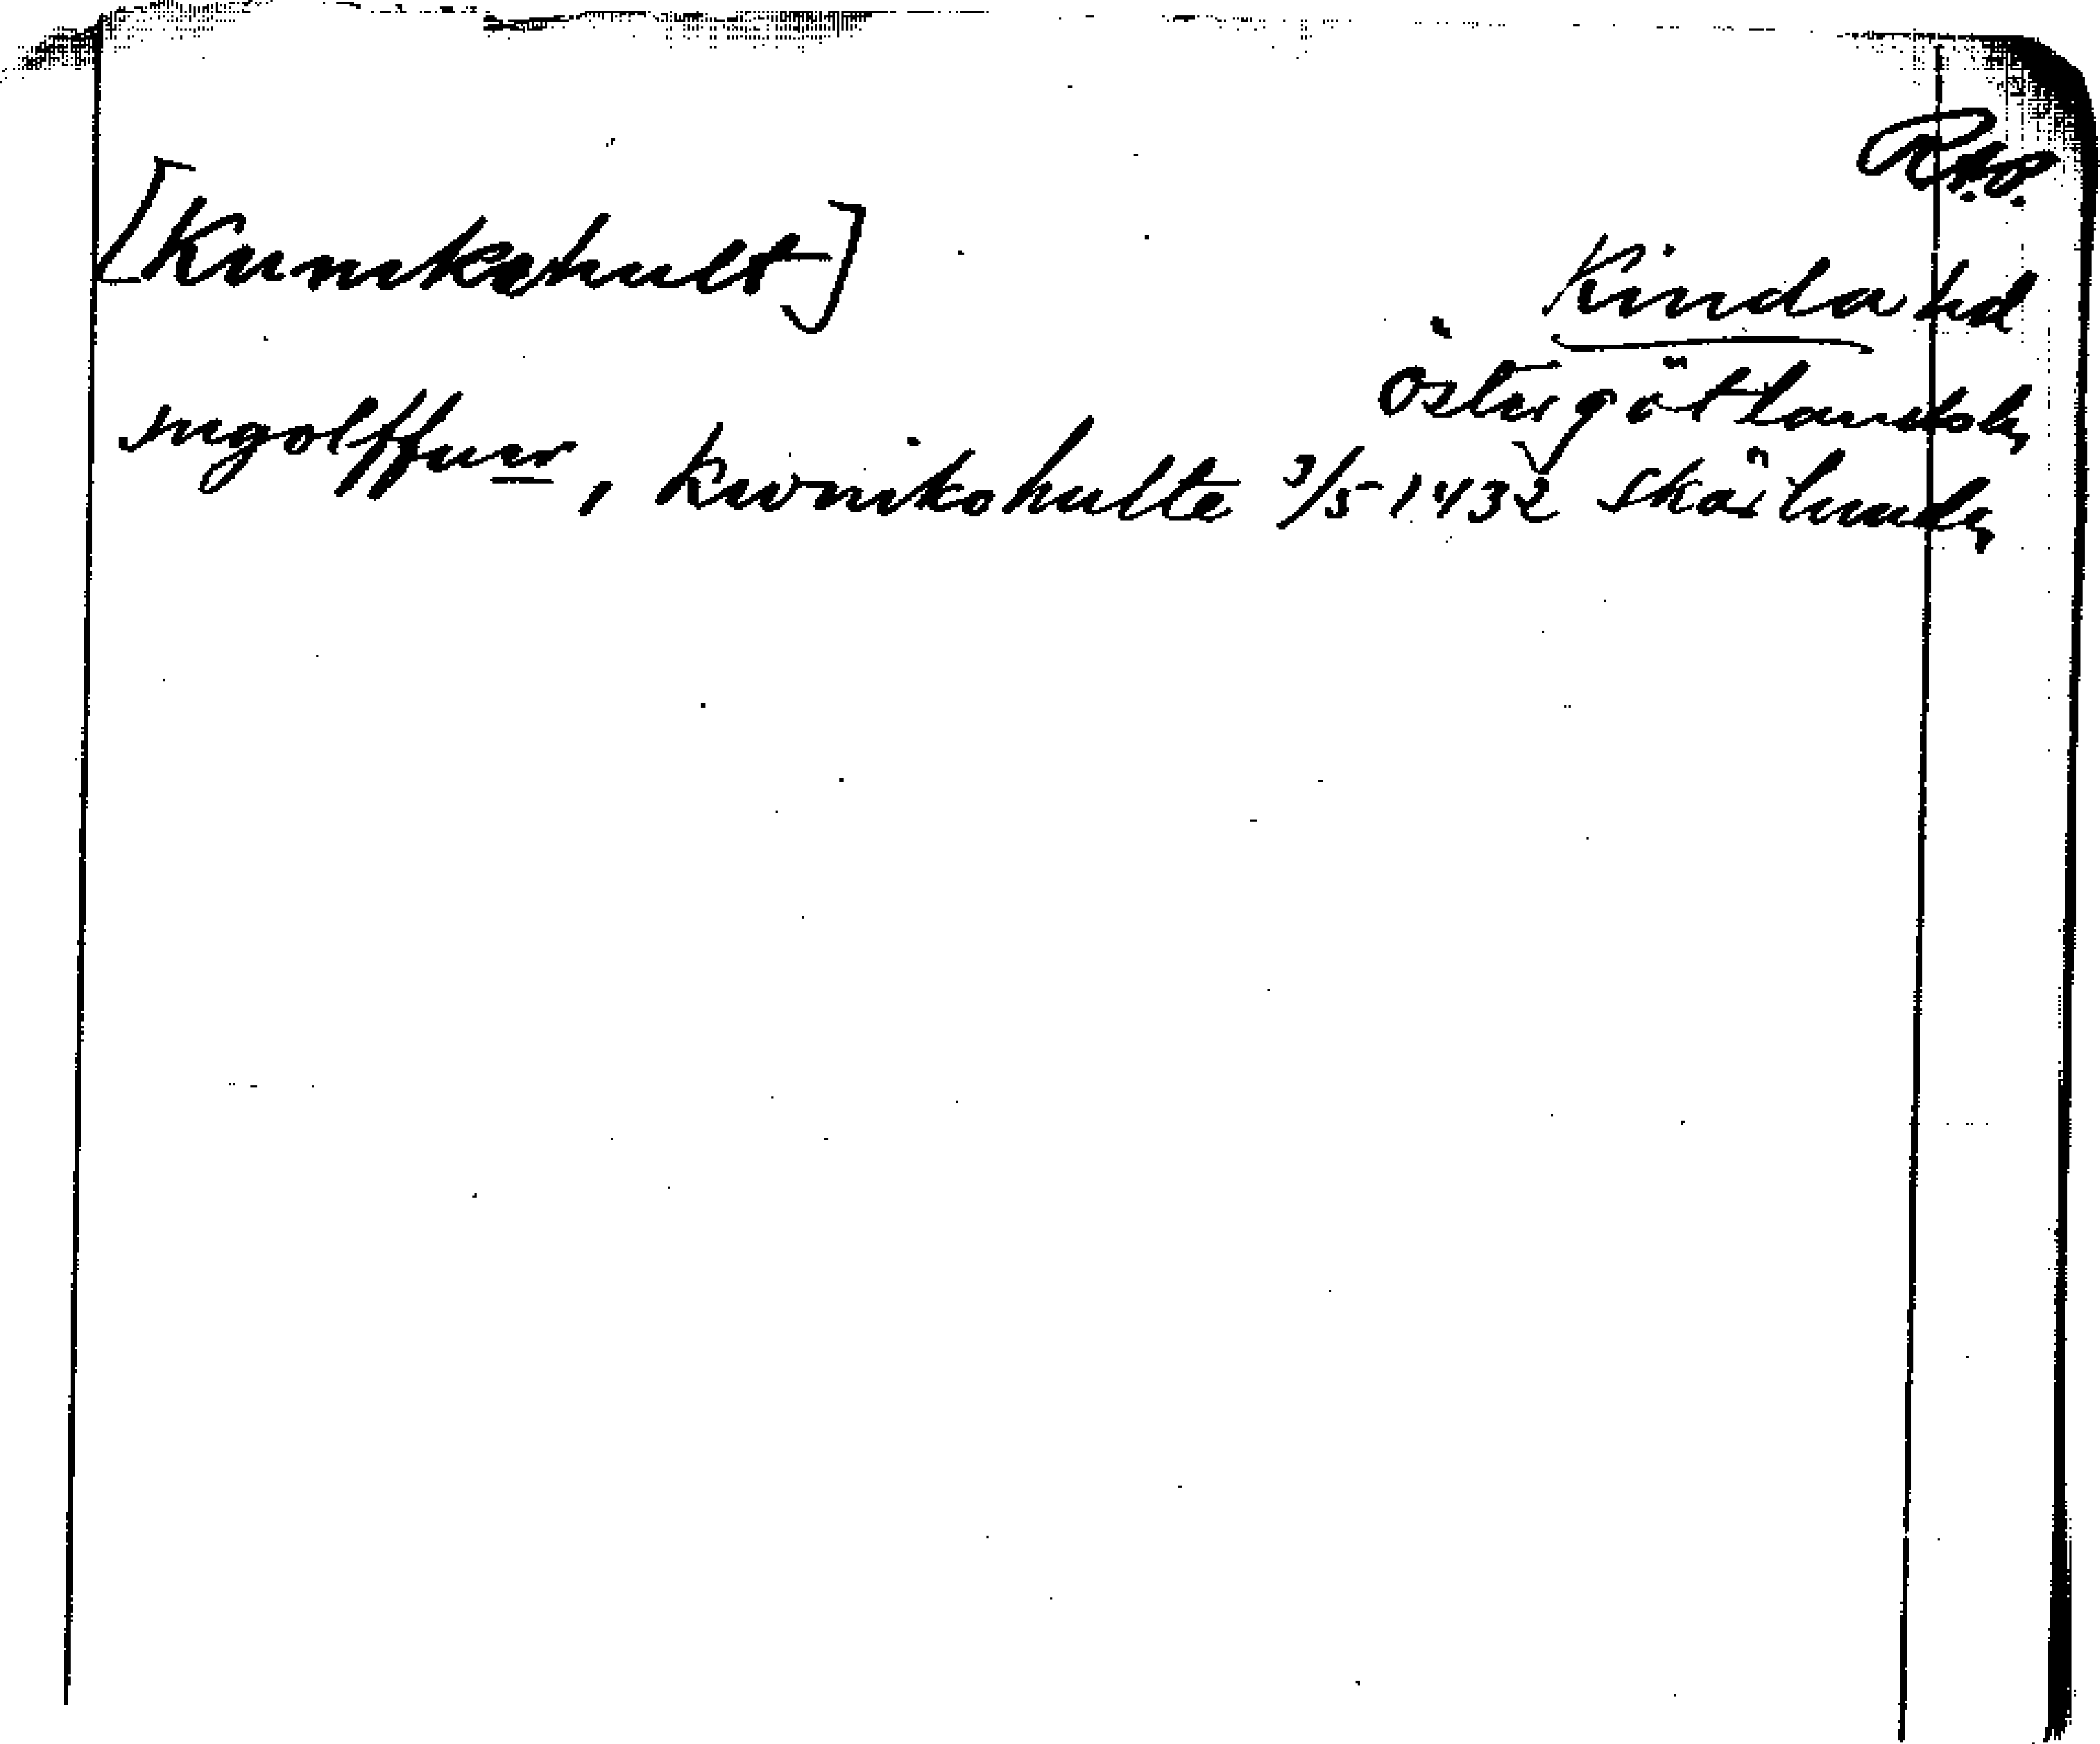 R.A.P.
[Kunikshult]
Kinda hd
Östergötlands l.
Ingolffuer, kwnikohulte 3/5 1432 Skärlunda